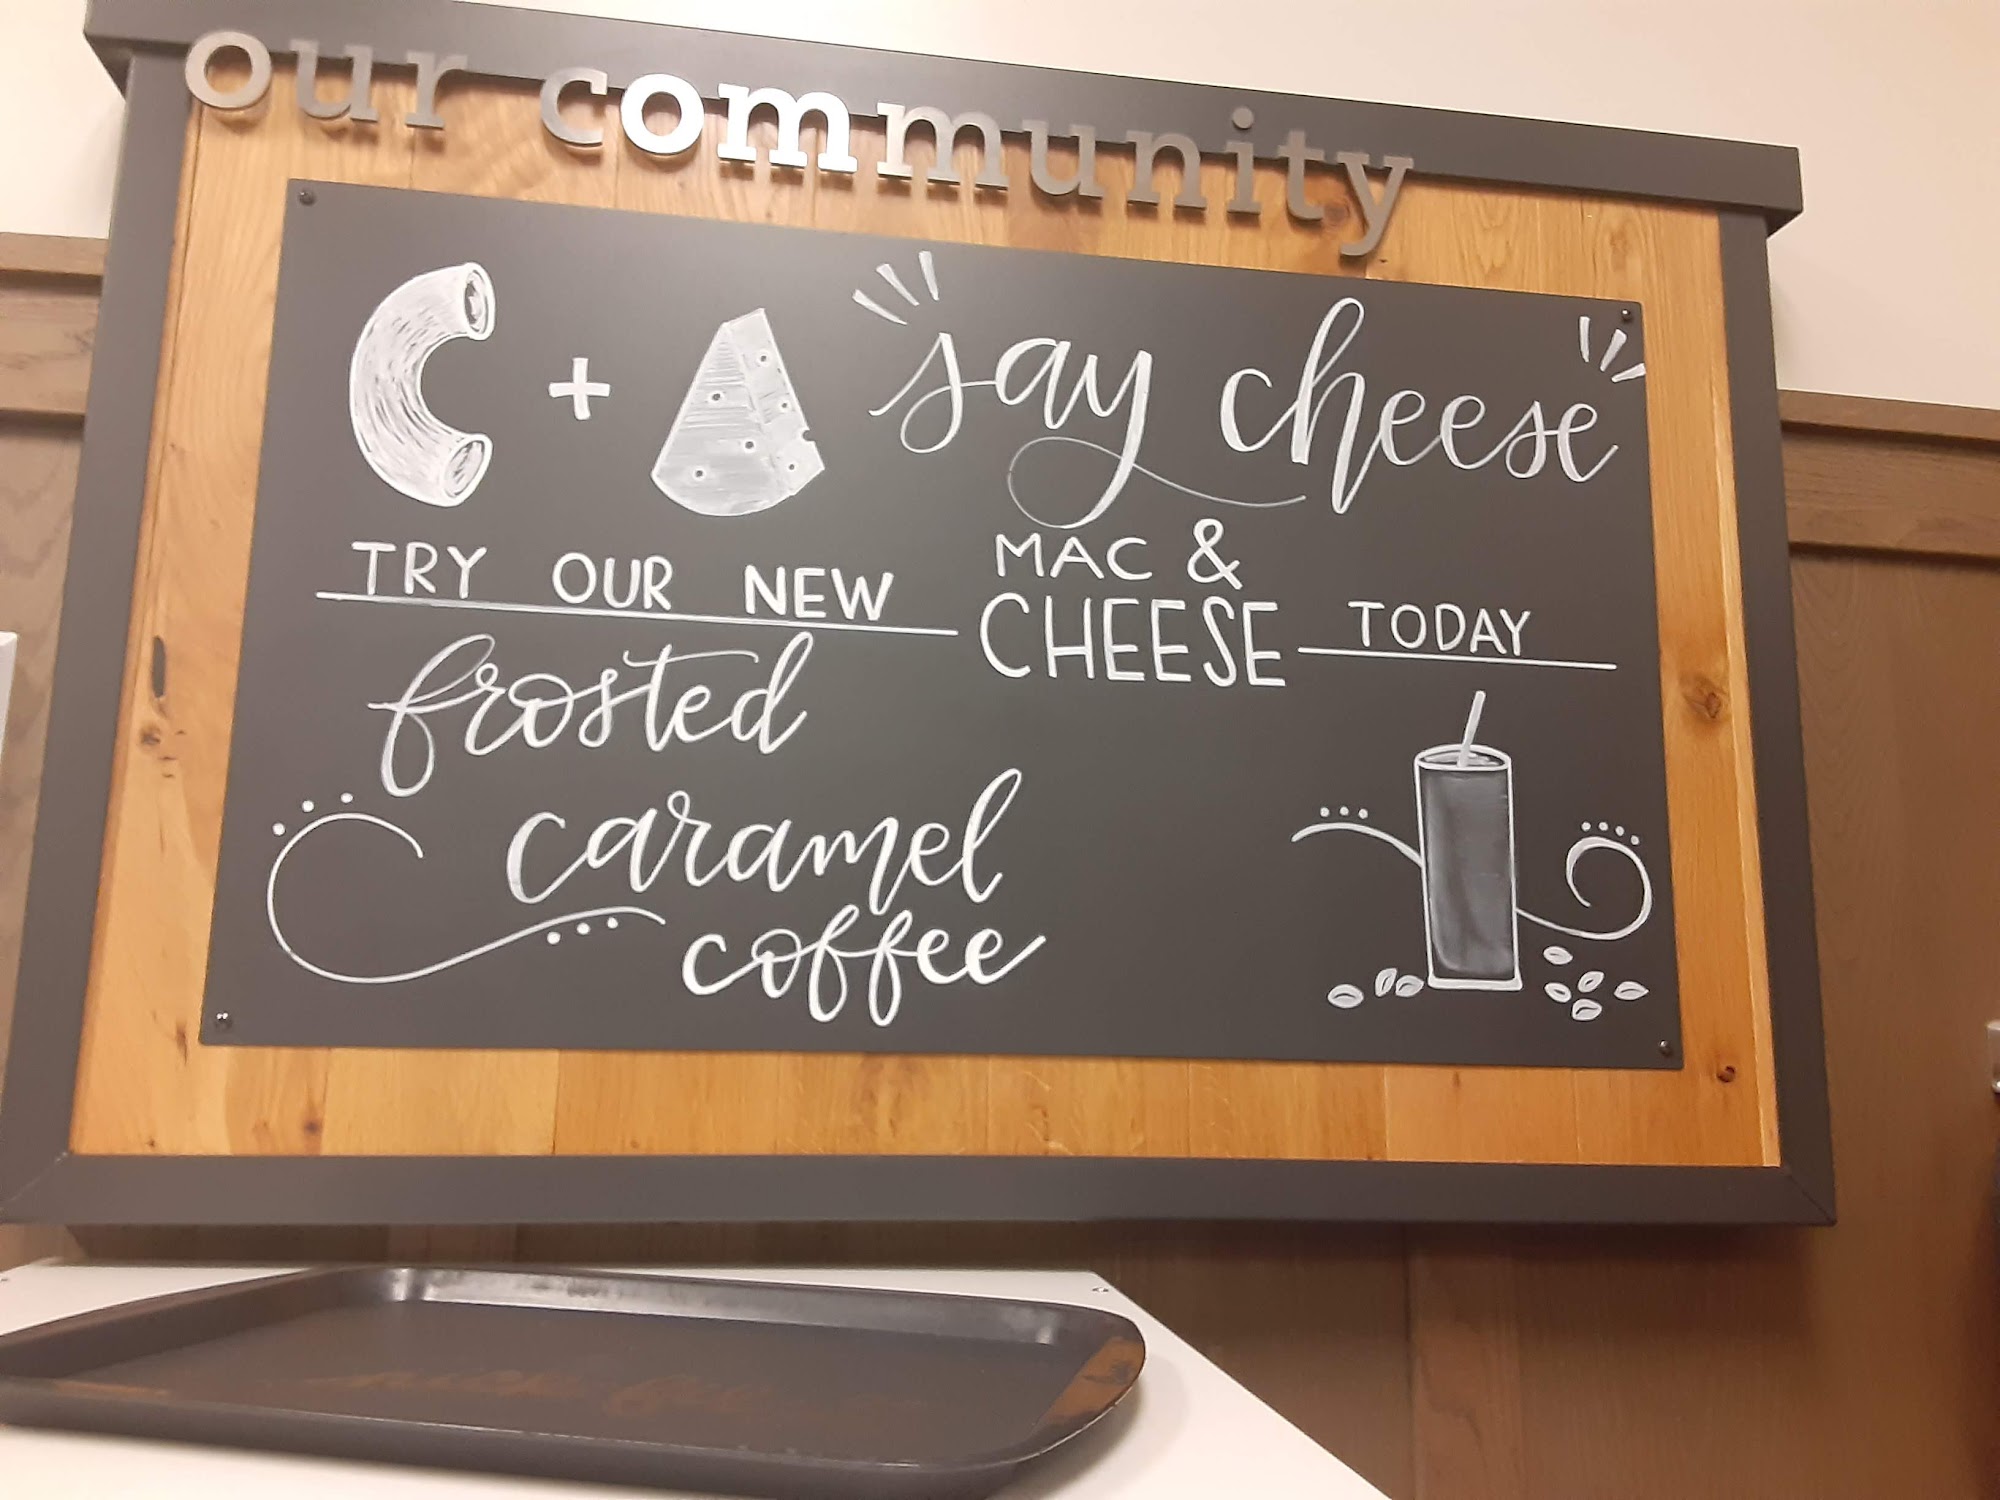 our community
+ say cheese
TRY OUR NEW MAC & CHEESE TODAY
frosted
caramel
coffee